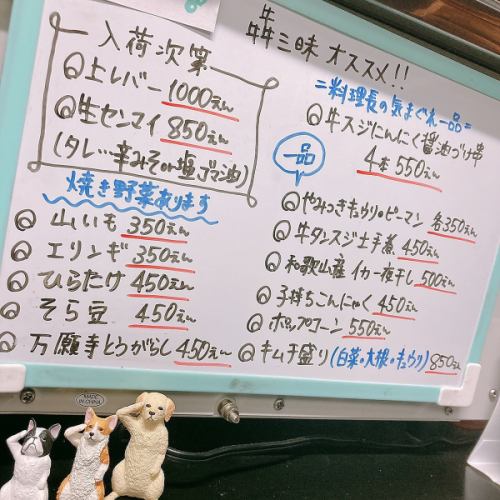 入荷次第
上レバー 1000えん
生センマイ 850えん
(タレ・辛みそor塩ゴマ油)
焼き野菜あります
山いも 350えん
エリンギ 350えん
ひらたけ 450えん
そら豆 450えん
万願寺とうがらし 450えん
犇三昧 オススメ!!
=料理長の気まぐれ一品=
牛スジにんにく醤油づけ串
4本 550えん
一品
やみつきキュウリ・ピーマン 各350えん
牛タンスジ土手煮 450えん
和歌山産 イカ一夜干し 500えん
子持ちこんにゃく 450えん
ポップコーン 550えん
キムチ盛り(白菜・大根・キュウリ) 850えん
MADE IN CHINA